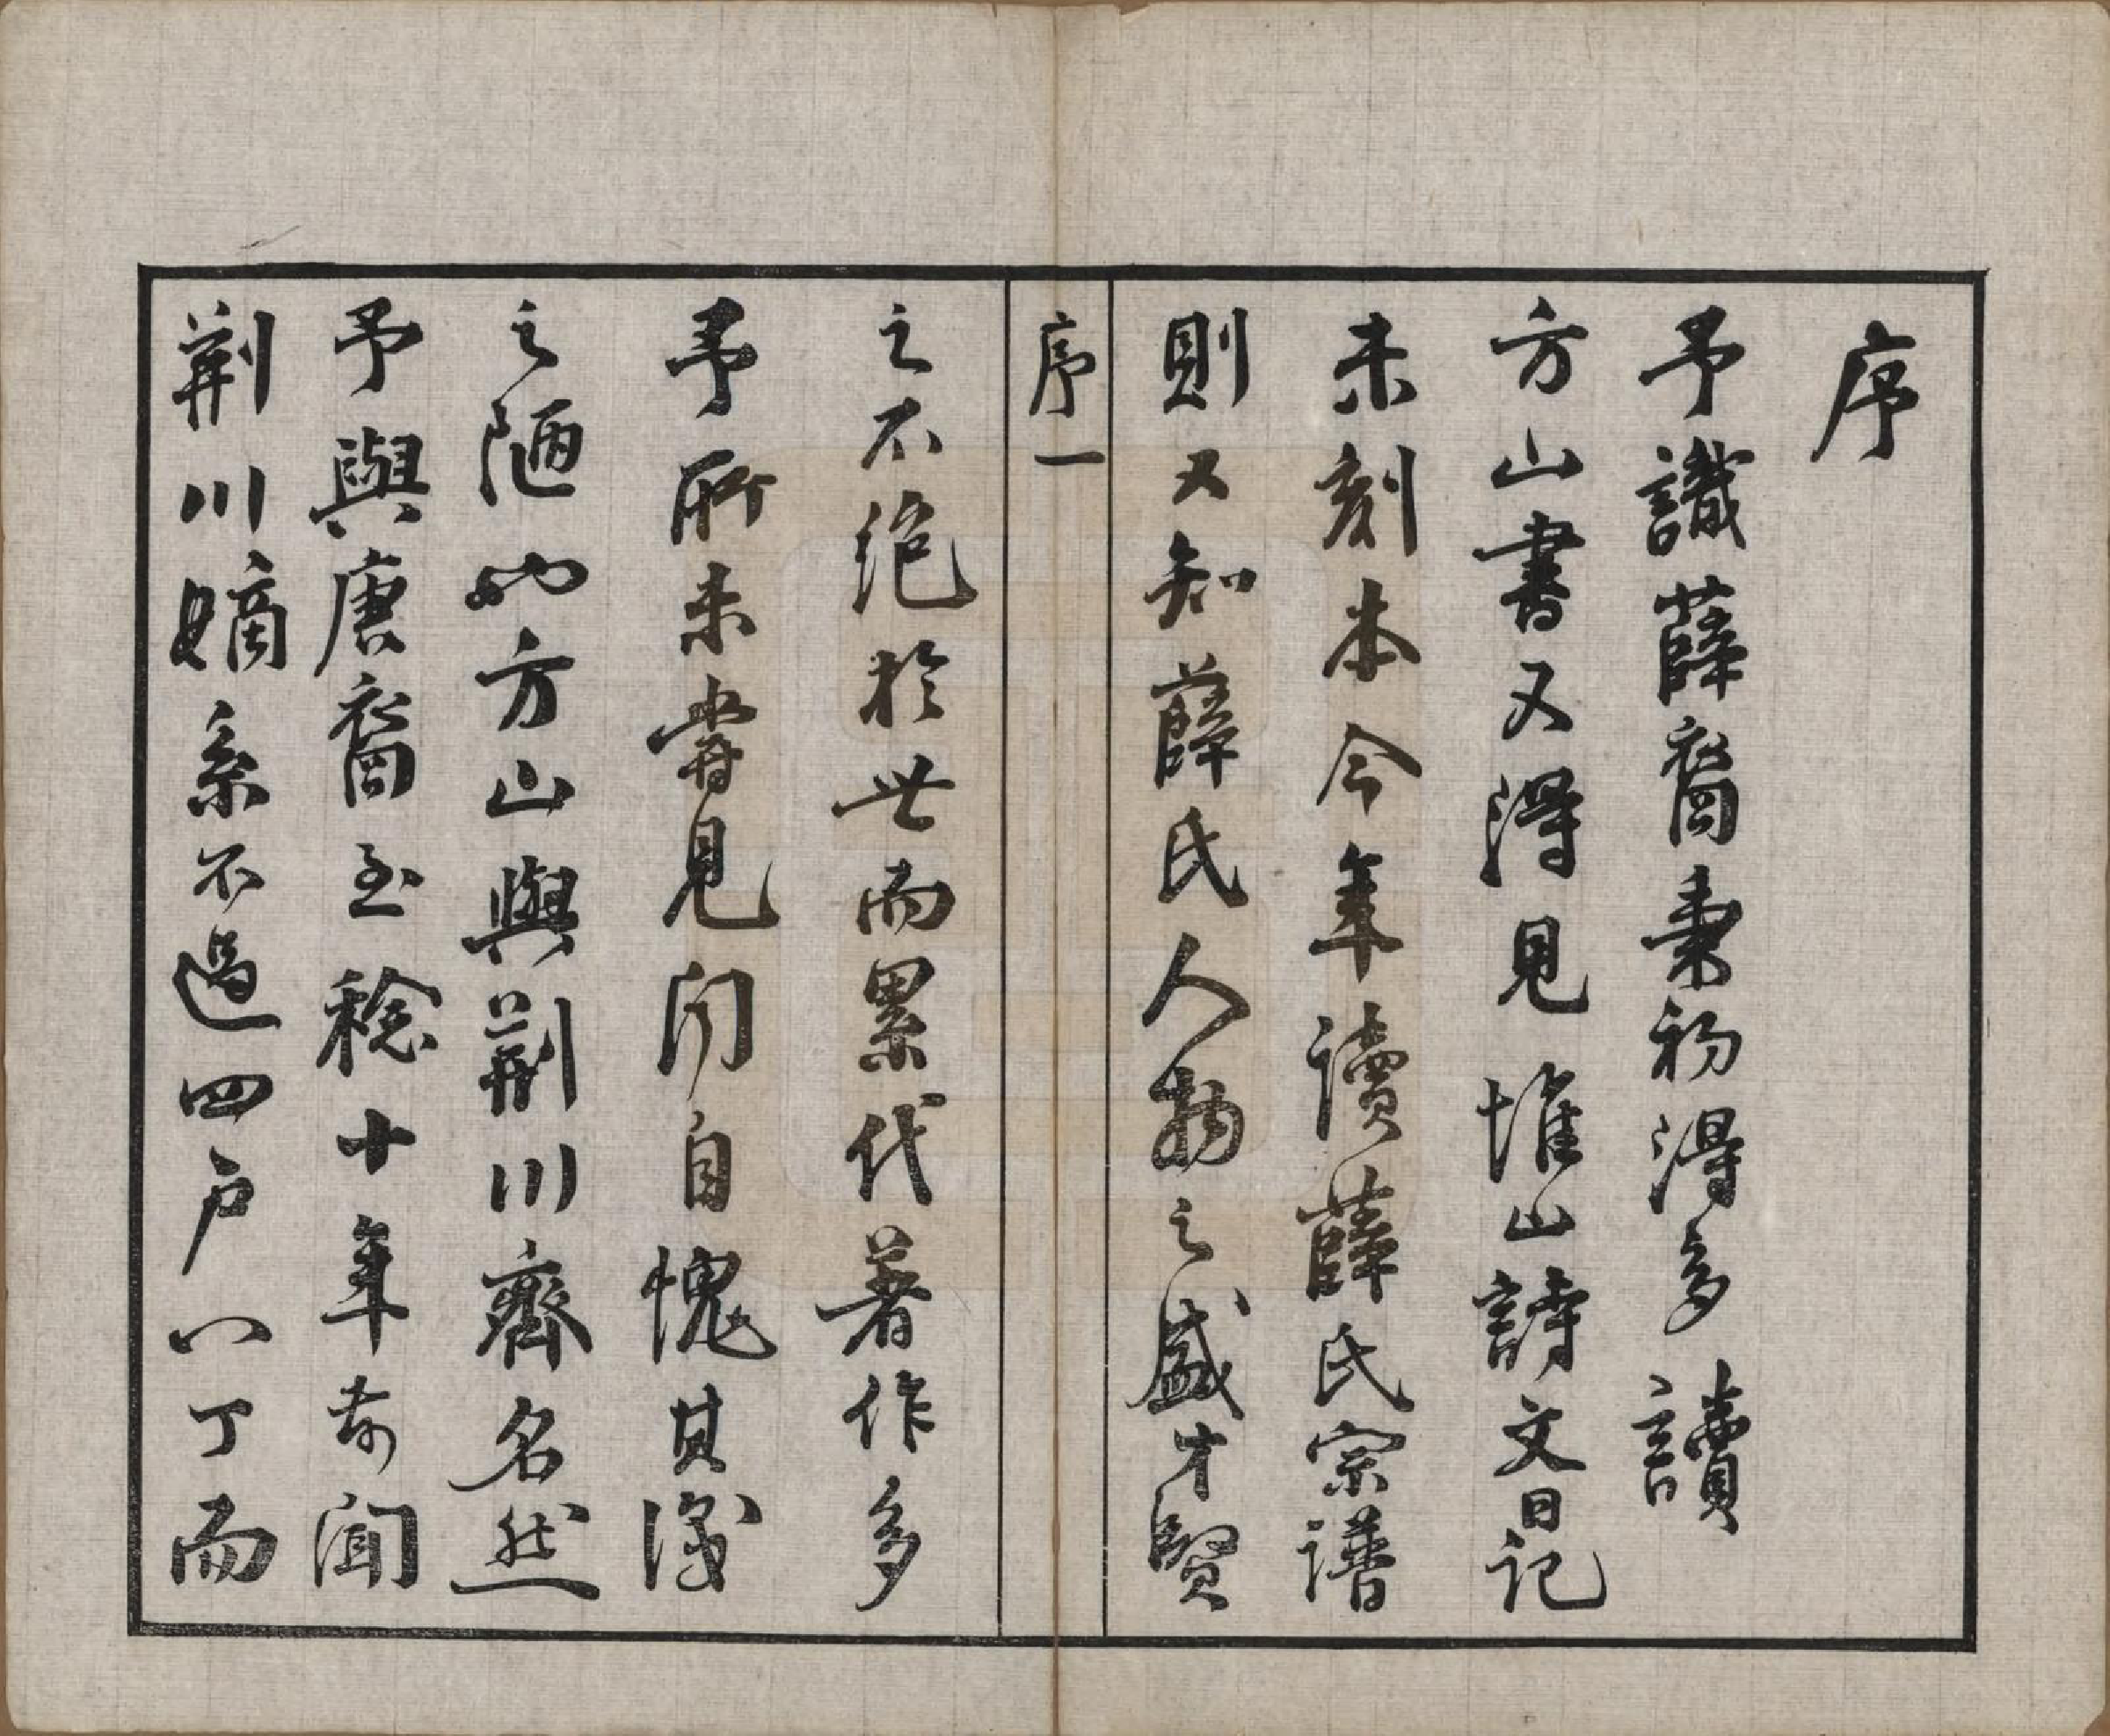 序
予識薛裔初得多讀
方山書又得見堆山詩文日記
未刻本今年讀薛氏宗譜
則又知薛氏人物之盛才賢
序一
之不絕於世而累代著作多
予所未嘗見聞自愧其識
之陋也方山與荊川齊名然
予與唐裔至稔十年前聞
荊川嫡系不過四户八丁而